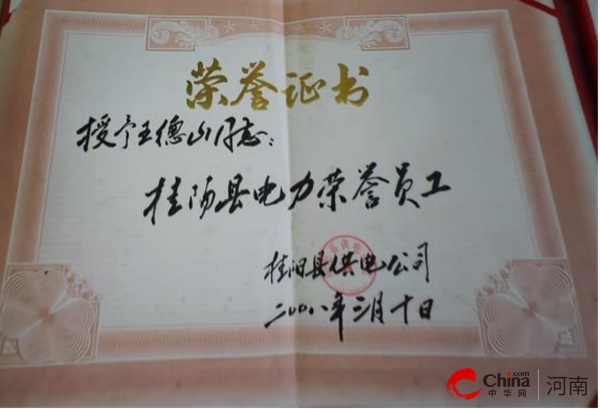 荣誉证书
授予王德山同志：
桂阳县电力荣誉员工
桂阳县供电公司
二〇〇八年三月十日
China.com
中华网
河南